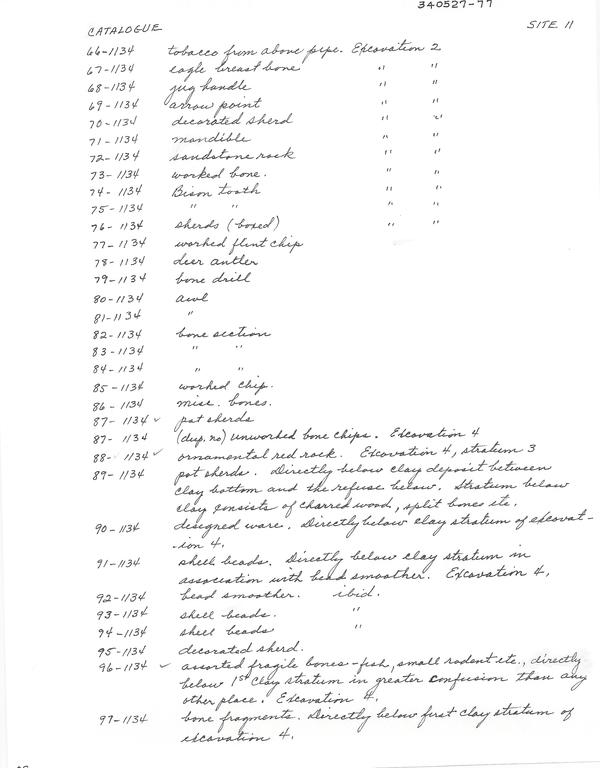 340527-77
CATALOGUE SITE 11
66-1134 tobacco from above pipe. Excavation 2
67-1134 eagle breast bone " "
68-1134 jug handle " "
69-1134 arrow point " "
70-1134 decorated sherd " "
71-1134 mandible " "
72-1134 sandstone rock " "
73-1134 worked bone. " "
74-1134 Bison tooth " "
75-1134 " " " "
76-1134 sherds (boxed) " "
77-1134 worked flint chip
78-1134 deer antler
79-1134 bone drill
80-1134 awl
81-1134 "
82-1134 bone section
83-1134 " "
84-1134 " "
85-1134 worked chip.
86-1134 misc. bones.
87-1134 ✓ pot sherds
87-1134 (dup. no) unworked bone chips. Excavation 4
88-1134 ✓ ornamental red rock. Excavation 4, stratum 3
89-1134 pot sherds. Directly below clay deposit between
clay bottom and the refuse below. Stratum below
clay consists of charred wood, split bones etc.
90-1134 designed ware. Directly below clay stratum of excavat-
-ion 4.
91-1134 shell beads. Directly below clay stratum in
association with bead smoother. Excavation 4.
92-1134 bead smoother. ibid.
93-1134 shell beads. "
94-1134 shell beads "
95-1134 decorated sherd.
96-1134 ✓ assorted fragile bones - fish, small rodent etc., directly
below 1st clay stratum in greater confusion than any
other place. Excavation 4.
97-1134 bone fragments. Directly below first clay stratum of
excavation 4.